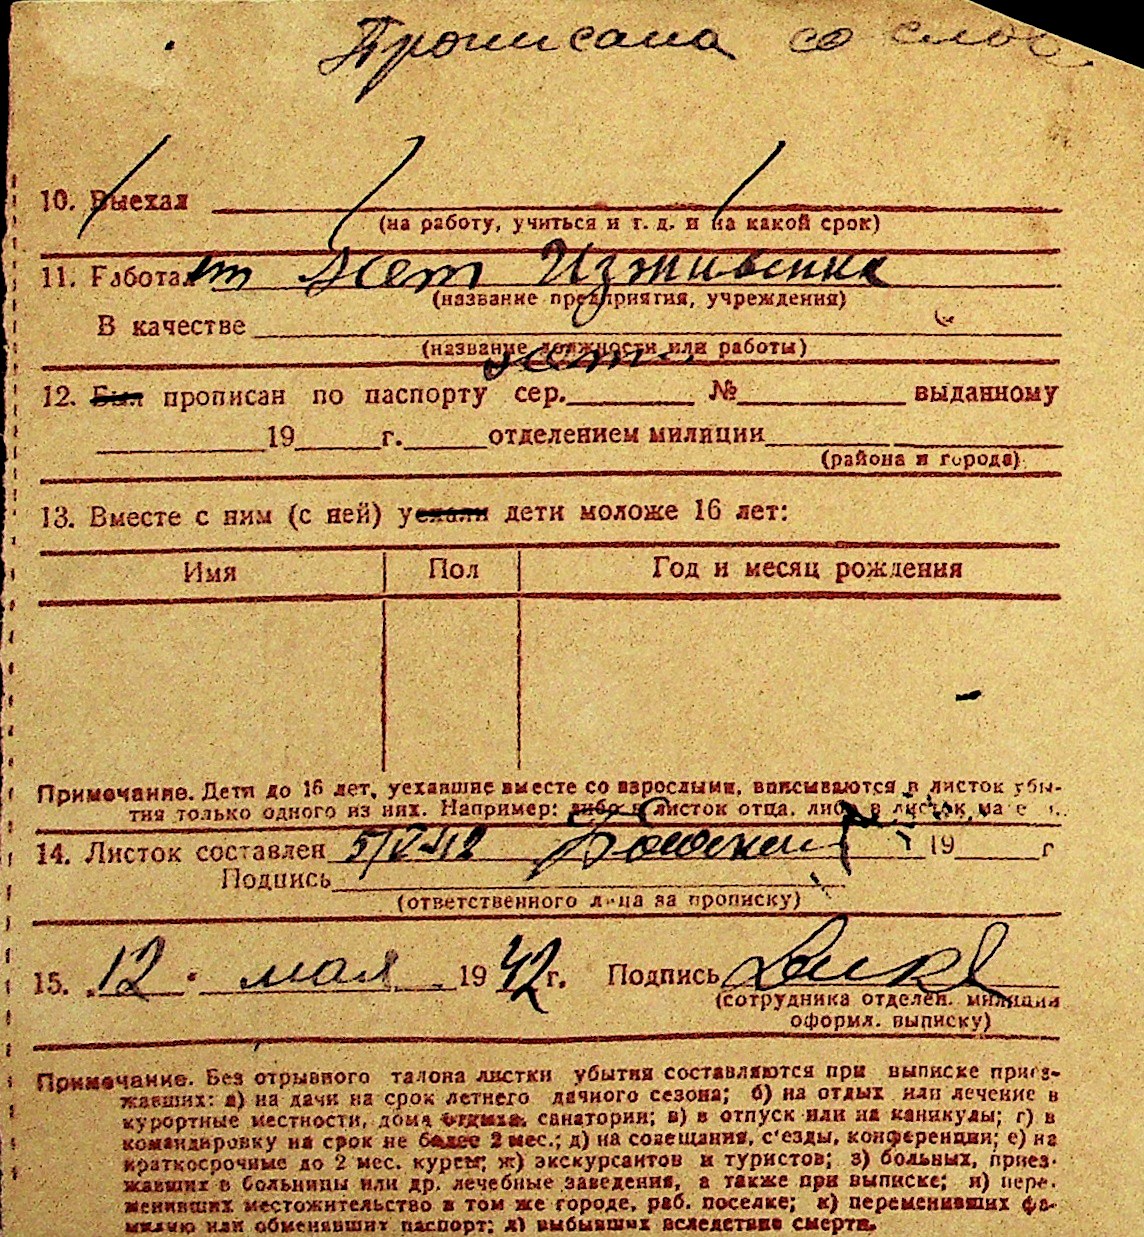 Прописана со слов
10. Выехал
(на работу, учиться и т. д. и на какой срок)
11. Работает нет Иждивенка
(название предприятия, учреждения)
В качестве
(название должности или работы)
нет
12. Был прописан по паспорту сер. № выданному
19 г. отделением милиции
(района и города)
13. Вместе с ним (с ней) уехали дети моложе 16 лет:
Имя Пол Год и месяц рождения
Примечание. Дети до 16 лет, уехавшие вместе со взрослыми, вписываются в листок убы-
тия только одного из них. Например: либо в листок отца, либо в листок
14. Листок составлен 5/V-42 19 г
Подпись
(ответственного лица за прописку)
15. 12 мая 1942 г. Подпись
(сотрудника отделен. милиции
оформл. выписку)
Примечание. Без отрывного талона листки убытия составляются при выписке приез-
жавших: а) на дачи на срок летнего дачного сезона; б) на отдых или лечение в
курортные местности, дома отдыха, санатории; в) в отпуск или на каникулы; г) в
командировку на срок не более 2 мес.; д) на совещания, с'езды, конференции; е) на
краткосрочные до 2 мес. курсы; ж) экскурсантов и туристов; з) больных, приез-
жавших в больницы или др. лечебные заведения, а также при выписке; и) пере-
менивших местожительство в том же городе, раб. поселке; к) переменивших фа-
милию или обменявших паспорт; л) выбывших вследствие смерти.